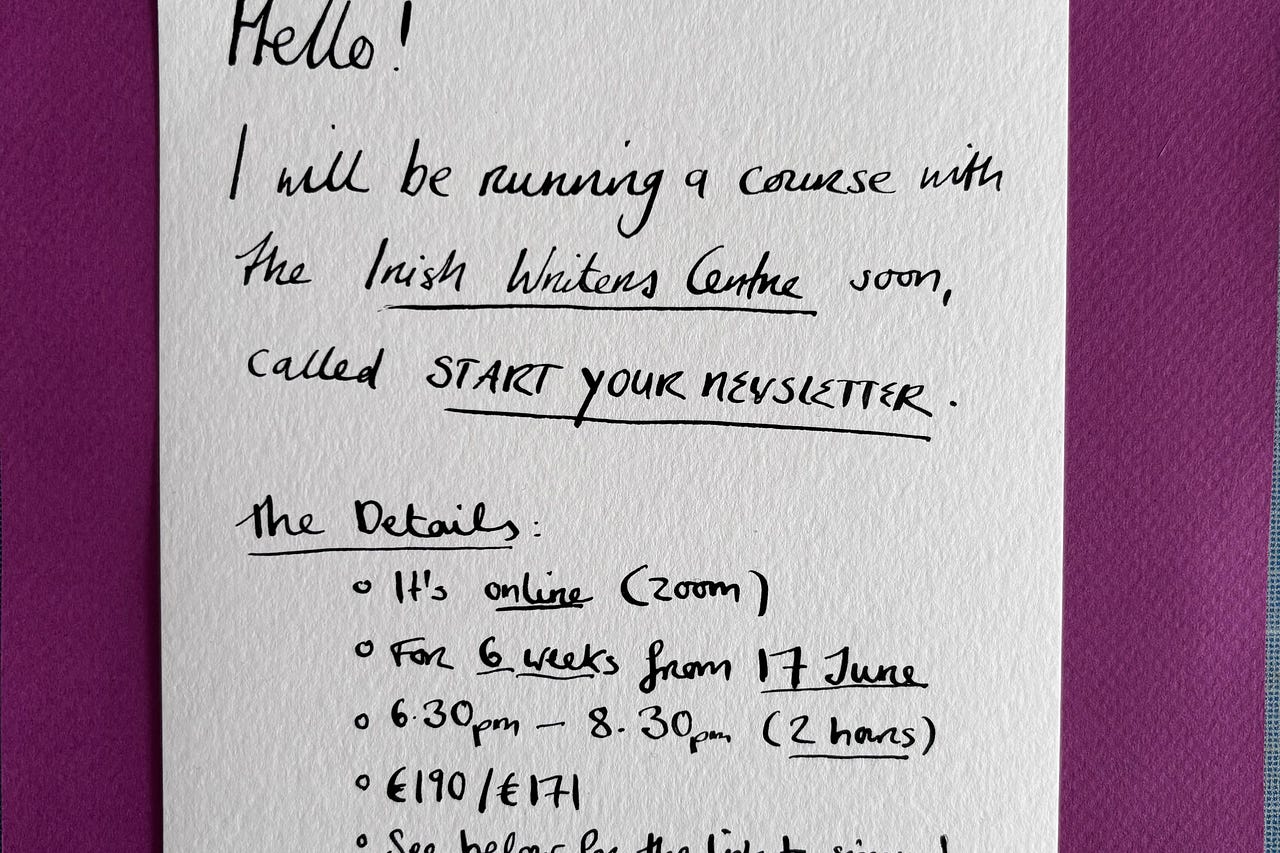 Hello!
I will be running a course with
the Irish Writers Centre soon,
called START YOUR NEWSLETTER.
The Details:
It's online (zoom)
For 6 weeks from 17 June
6.30pm – 8.30pm (2 hours)
€190/€171
See below for the link to